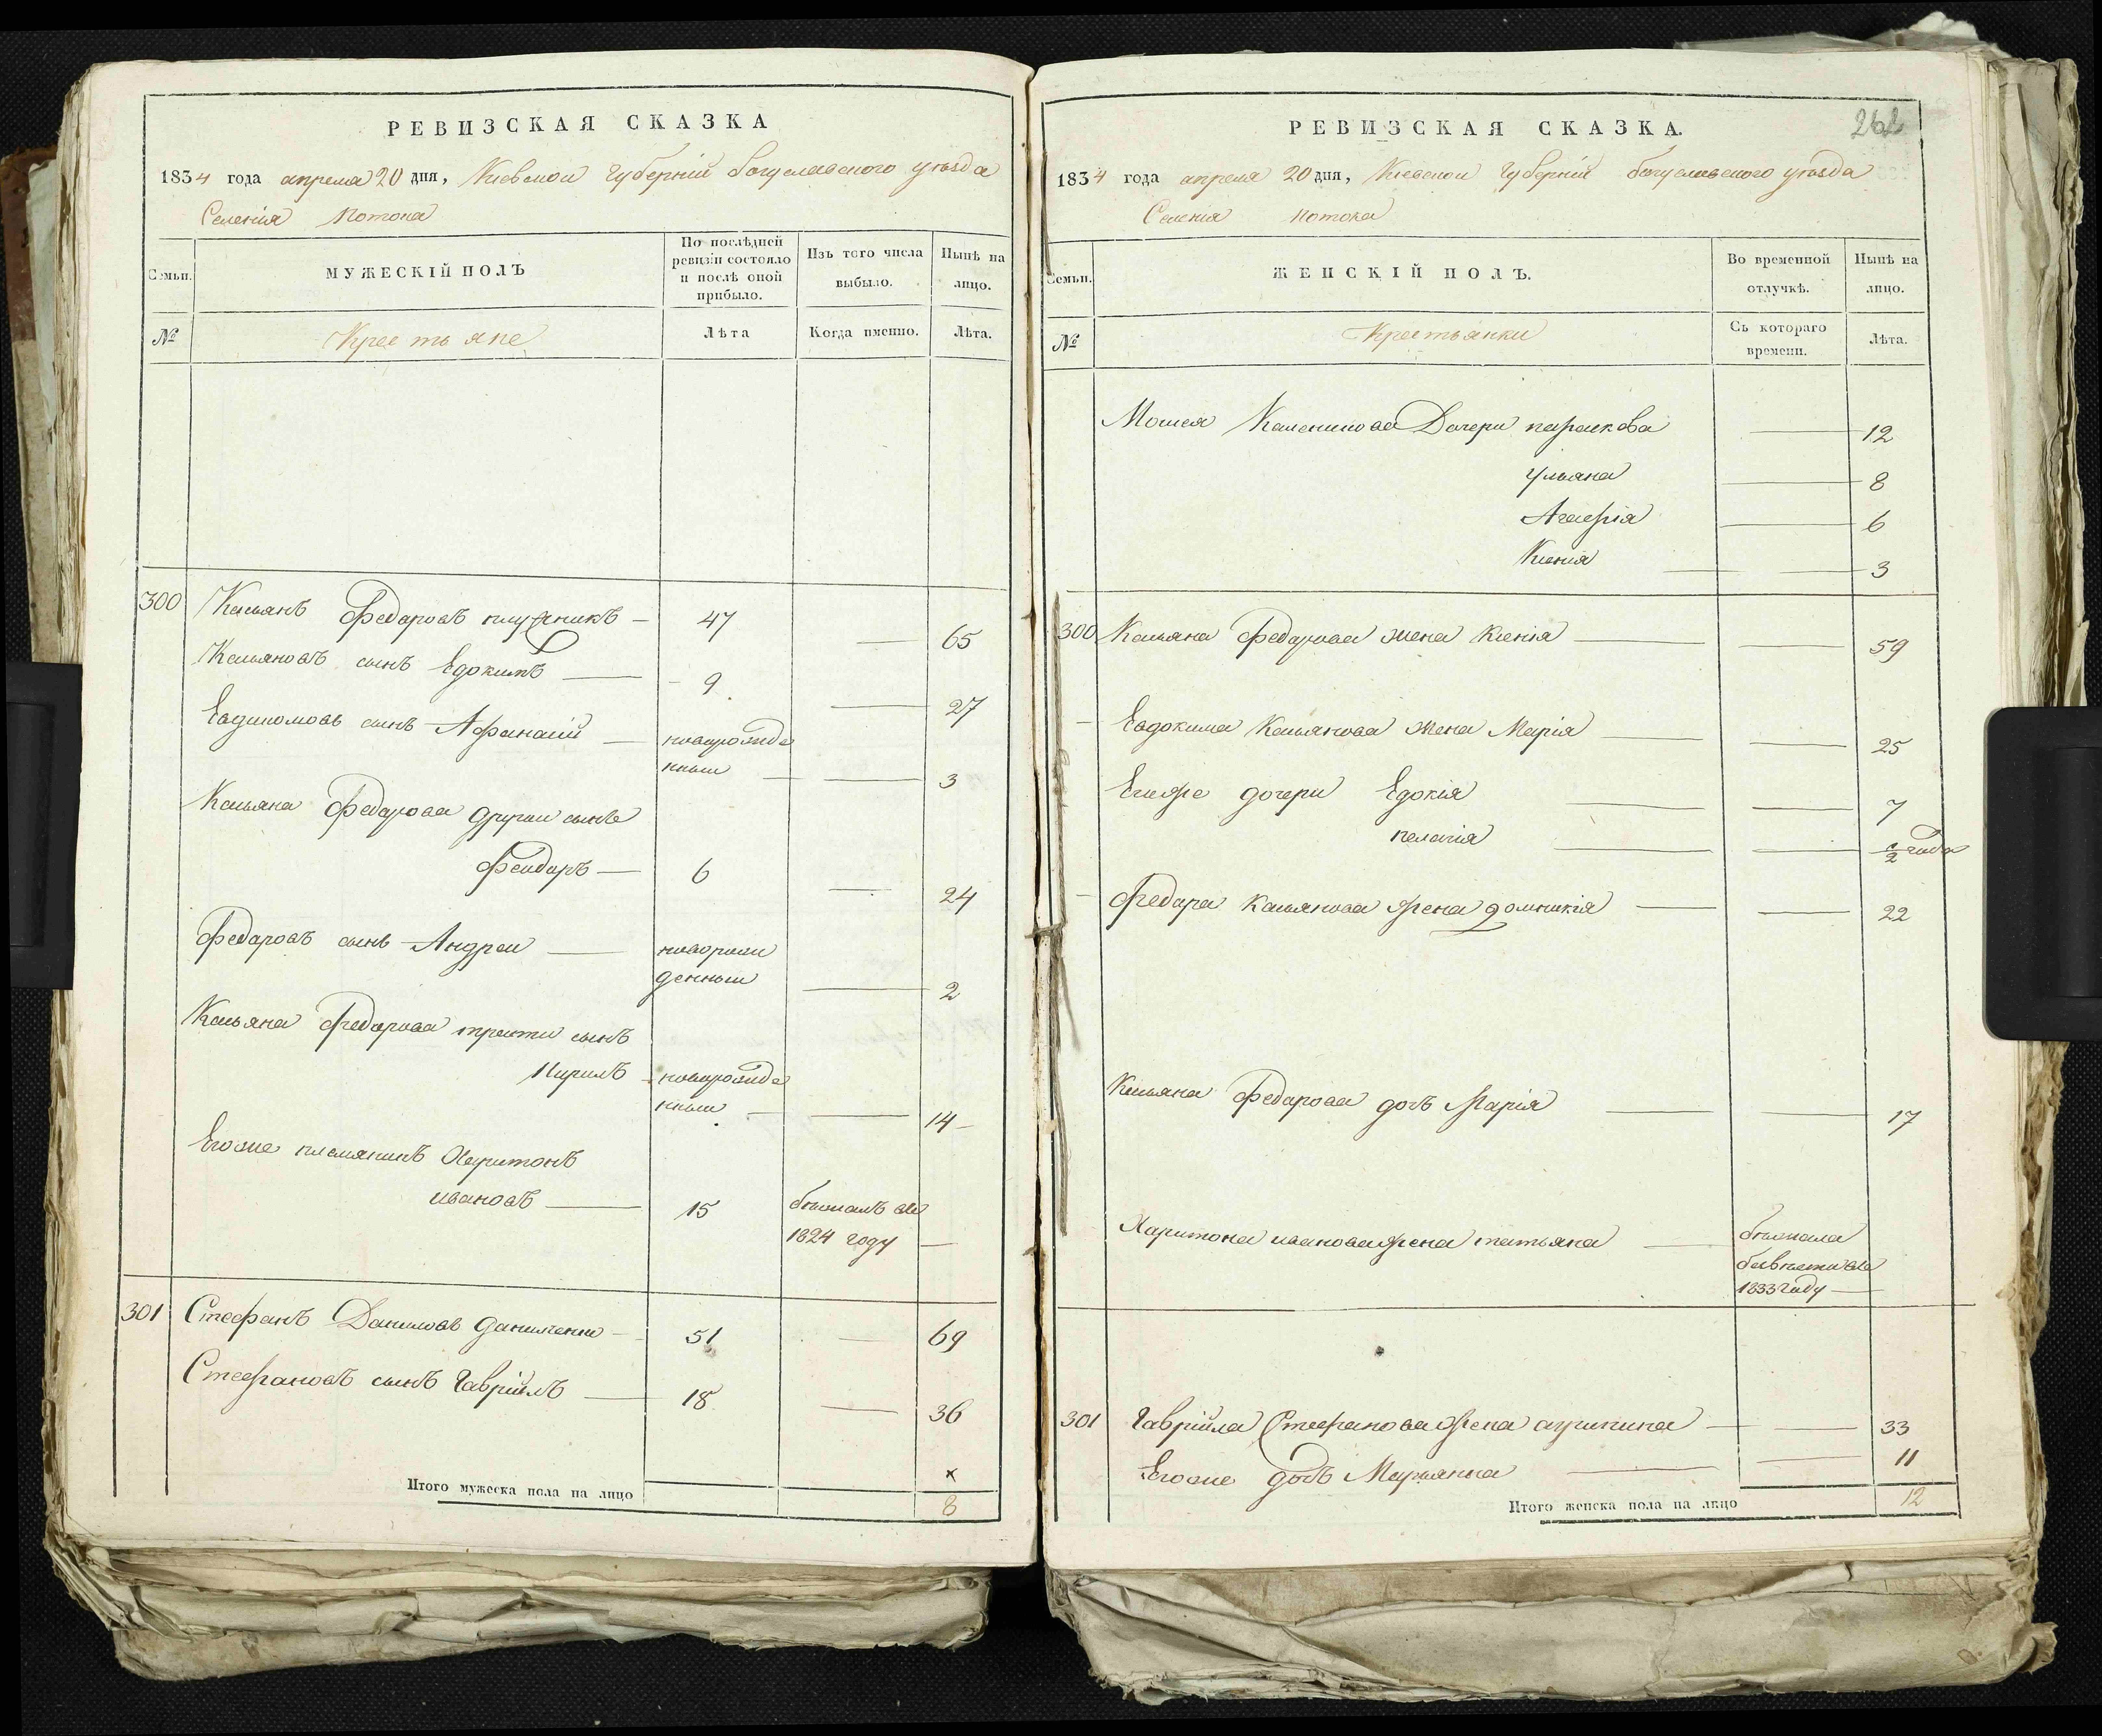 РЕВИЗСКАЯ СКАЗКА
1834 года апреля 20 дня, Киевской Губерніи богуславского уезда
Селенія Потока
Семьи.
МУЖЕСКІЙ ПОЛЪ
По послѣдней ревизіи состояло и послѣ оной прибыло.
Изъ того числа выбыло.
Нынѣ на лицо.
№
Крестьяне
Лѣта
Когда именно.
Лѣта.
300 Касьянъ Федаровъ 47 — 65
Касьяновъ сынъ Едокимъ — 9 — 27
сынъ Афанасій — новорожде
нный — — 3
Касьяна Федарова другой сынъ
Феодаръ — 6 — 24
Федаровъ сынъ Андрей — новорож
денный — 2
Касьяна Федарова трети сынъ
Кирилъ новорожде
нный — — 14
Егоже племяникъ Харитонъ
ивановъ — 15 бежалъ въ
1824 году —
301 Стефанъ Даниловъ 51 — 69
Стефановъ сынъ Гавріилъ — 18 — 36
х
Итого мужеска пола на лицо 8
262
РЕВИЗСКАЯ СКАЗКА.
1834 года апреля 20 дня, Киевской Губерніи богуславского уезда
Селенія потока
Семьи.
ЖЕНСКІЙ ПОЛЪ.
Во временной отлучкѣ.
Нынѣ на лицо.
№
Крестьянки
Съ котораго времени.
Лѣта.
Мосея Дочери параскова — 12
ульяна — 8
Агафія — 6
Ксенія — 3
300 Касьяна Федарова жена Ксенія — — 59
Евдокима Касьянова жена Марія — — 25
Егоже дочери Едокія — — 7
пелагія — — ½ года
Федара Касьянова жена домникія — — 22
Касьяна Федарова дочь Марія — — 17
Харитона иванова жена татьяна — бежала
безвести въ
1833 году —
301 Гавріила Стефанова жена — — 33
Егоже дочь Марьянна — — 11
Итого женска пола на лицо 12